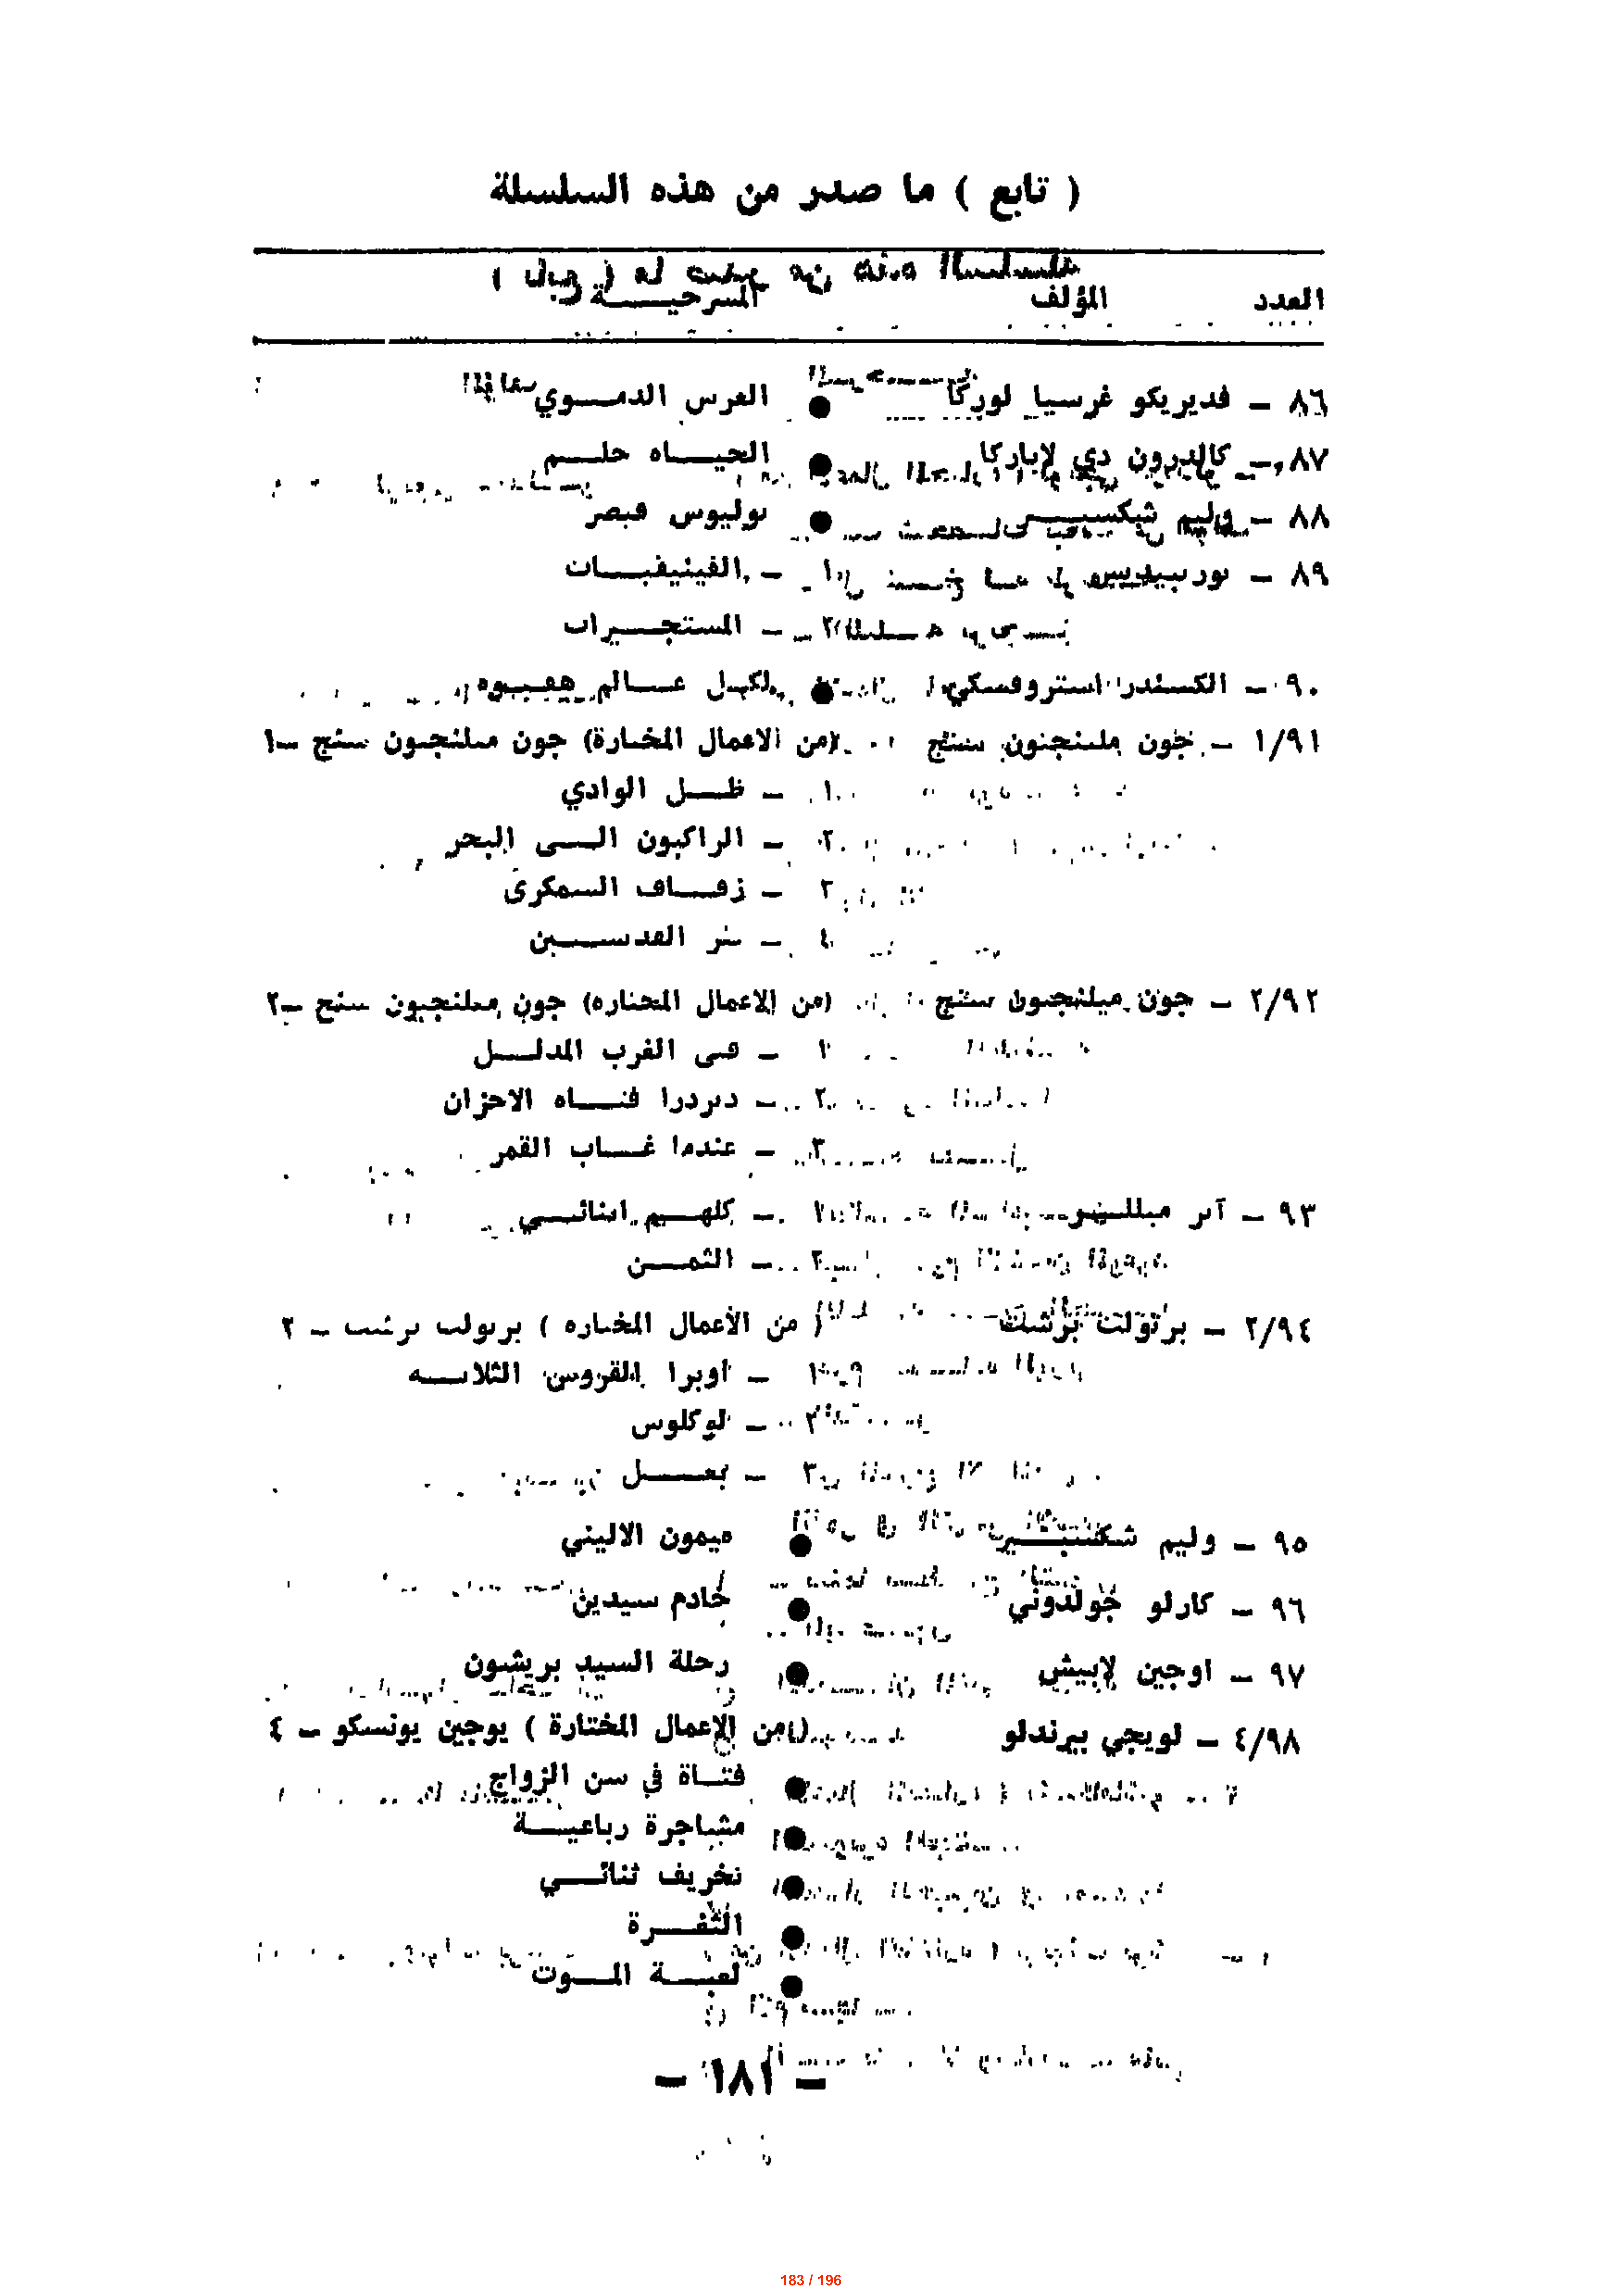 ( تابع ) ما صدر من هذه السلسلة
العدد المؤلف المسرحيــــة
٨٦ – فديريكو غرسيا لوركا ● العرس الدمــوي
٨٧ – كالدرون دي لاباركا ● الحيــاه حلــم
٨٨ – وليم شكسبيــر ● يوليوس قيصر
٨٩ – يوربيديس ١ – الفينيقيــات
٢ – المستجــيرات
٩٠ – الكسندر استروفسكي ● لكــل عــالم هفــوه
١/٩١ – جون ملينجتون سنج (من الاعمال المختارة) جون ملنجتون سنج –١
١ – ظــل الوادي
٢ – الراكبون الــى البحر
٣ – زفــاف السمكرى
٤ – بئر القدســين
٢/٩٢ – جون ميلنجتون سنج (من الاعمال المختاره) جون ملنجتون سنج –٢
١ – فتى الغرب المدلــل
٢ – ديردرا فتــاه الاحزان
٣ – عندما غــاب القمر
٩٣ – آثر ميللــر ١ – كلهــم ابنائــي
٢ – الثمــن
٢/٩٤ – برتولت برشت ( من الأعمال المختاره ) برتولت برشت – ٢
١ – أوبرا القروش الثلاثــه
٢ – لوكلوس
٣ – بعــل
٩٥ – وليم شكسبــير ● تيمون الاثيني
٩٦ – كارلو جولدوني ● خادم سيدين
٩٧ – اوجين لابيش ● رحلة السيد بريشون
٤/٩٨ – لويجي بيرندلو (من الإعمال المختارة ) يوجين يونسكو – ٤
● فتــاة في سن الزواج
● مشاجرة رباعيــة
● تخريف ثنائــي
● الثغــرة
● لعبــة المــوت
– ١٨١ –
183 / 196